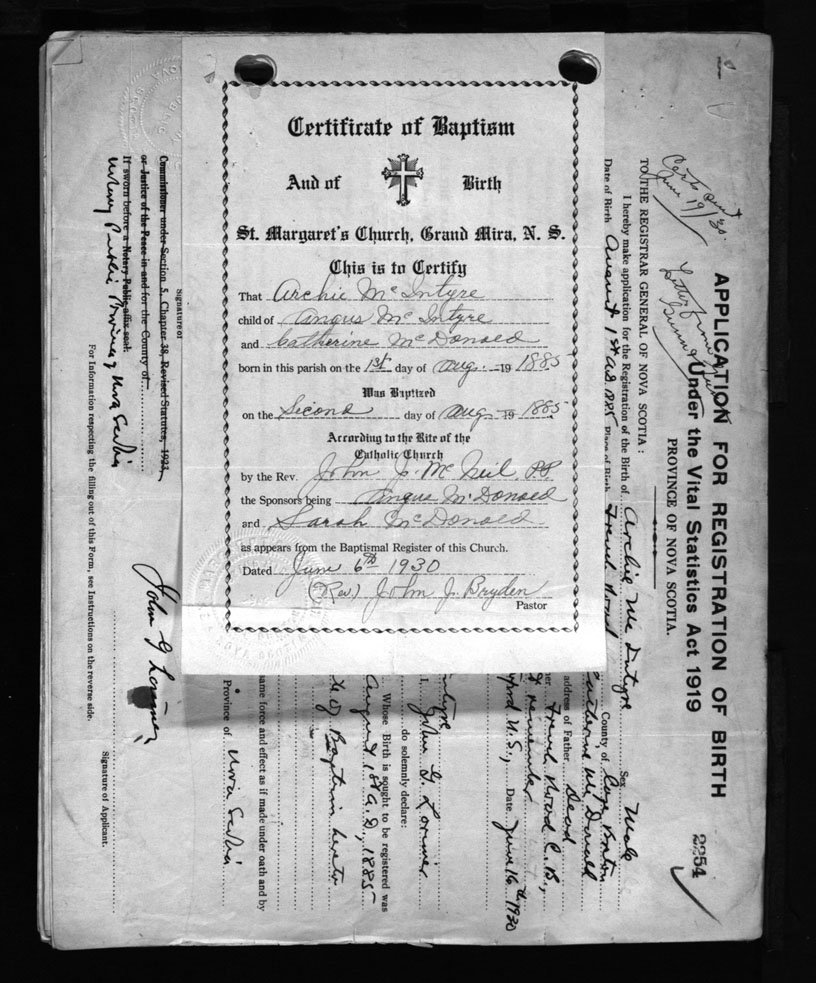 Certificate of Baptism
And of Birth
St. Margaret's Church, Grand Mira, N. S.
This is to Certify
That Archie McIntyre
child of Angus McIntyre
and Catherine McDonald
born in this parish on the 1st day of Aug. 19 1885
Was Baptized
on the Second day of Aug 19 1885
According to the Rite of the
Catholic Church
by the Rev. John J. McNeil PP
the Sponsors being Angus McDonald
and Sarah McDonald
as appears from the Baptismal Register of this Church.
Dated June 6th 1930
(Rev.) John J. Bryden
Pastor
2254
APPLICATION FOR REGISTRATION OF BIRTH
Under the Vital Statistics Act 1919
PROVINCE OF NOVA SCOTIA.
Certs
June 19/30.
Letter from
TO THE REGISTRAR GENERAL OF NOVA SCOTIA:
I hereby make application for the Registration of the Birth of Archie McIntyre Sex Male
Date of Birth August 1st A.D. 1885 Place of Birth French Road County of Cape Breton
Catherine McDonald
address of Father Dead
French Road C. B.,
remember
N.S., Date June 16th 1930
I, John G. Lorimer
do solemnly declare:
Whose Birth is sought to be registered was
August 1st A.D., 1885
of Baptism hereto
same force and effect as if made under oath and by
Province of Nova Scotia
John G Lorimer
Signature of
Commissioner under Section 5, Chapter 38, Revised Statutes, 1923,
or Justice of the Peace in and for the County of
If sworn before a Notary Public affix seal.
Notary Public Province of Nova Scotia
Signature of Applicant.
For Information respecting the filling out of this Form, see Instructions on the reverse side.